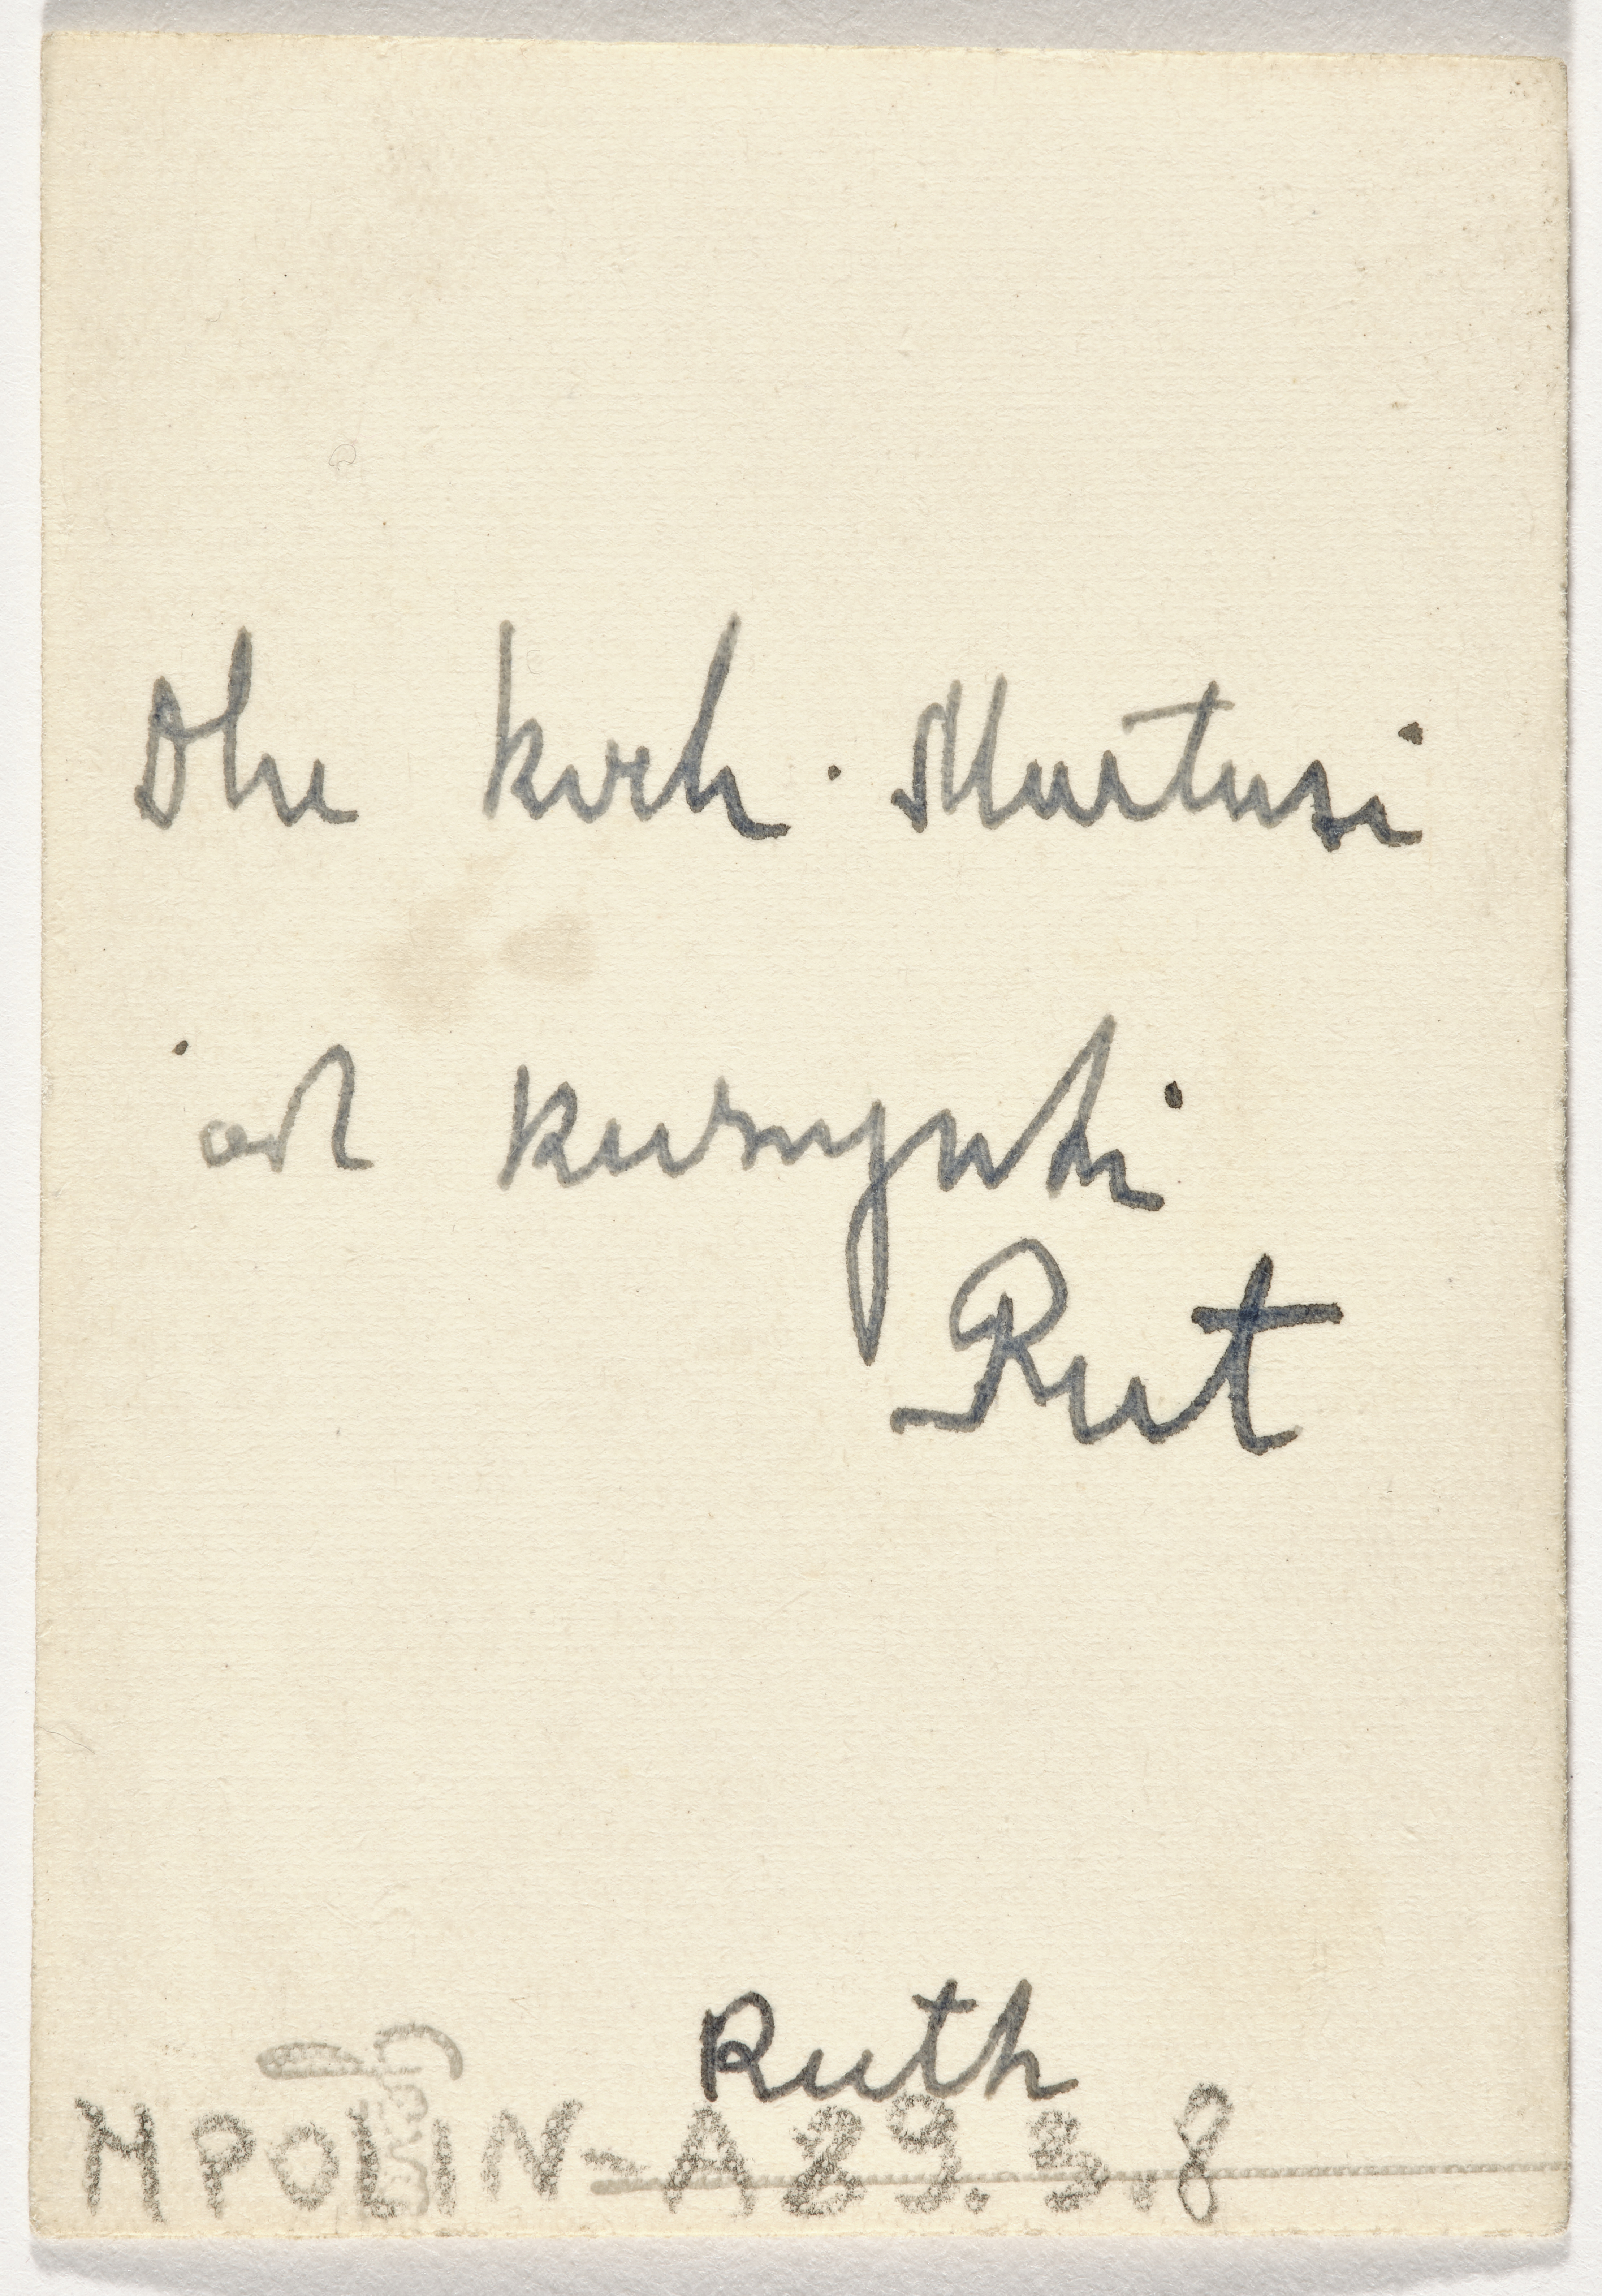 Dla koch. Martusi
od kuzynki
Rut
Ruth
MPOLIN-A29.3.8